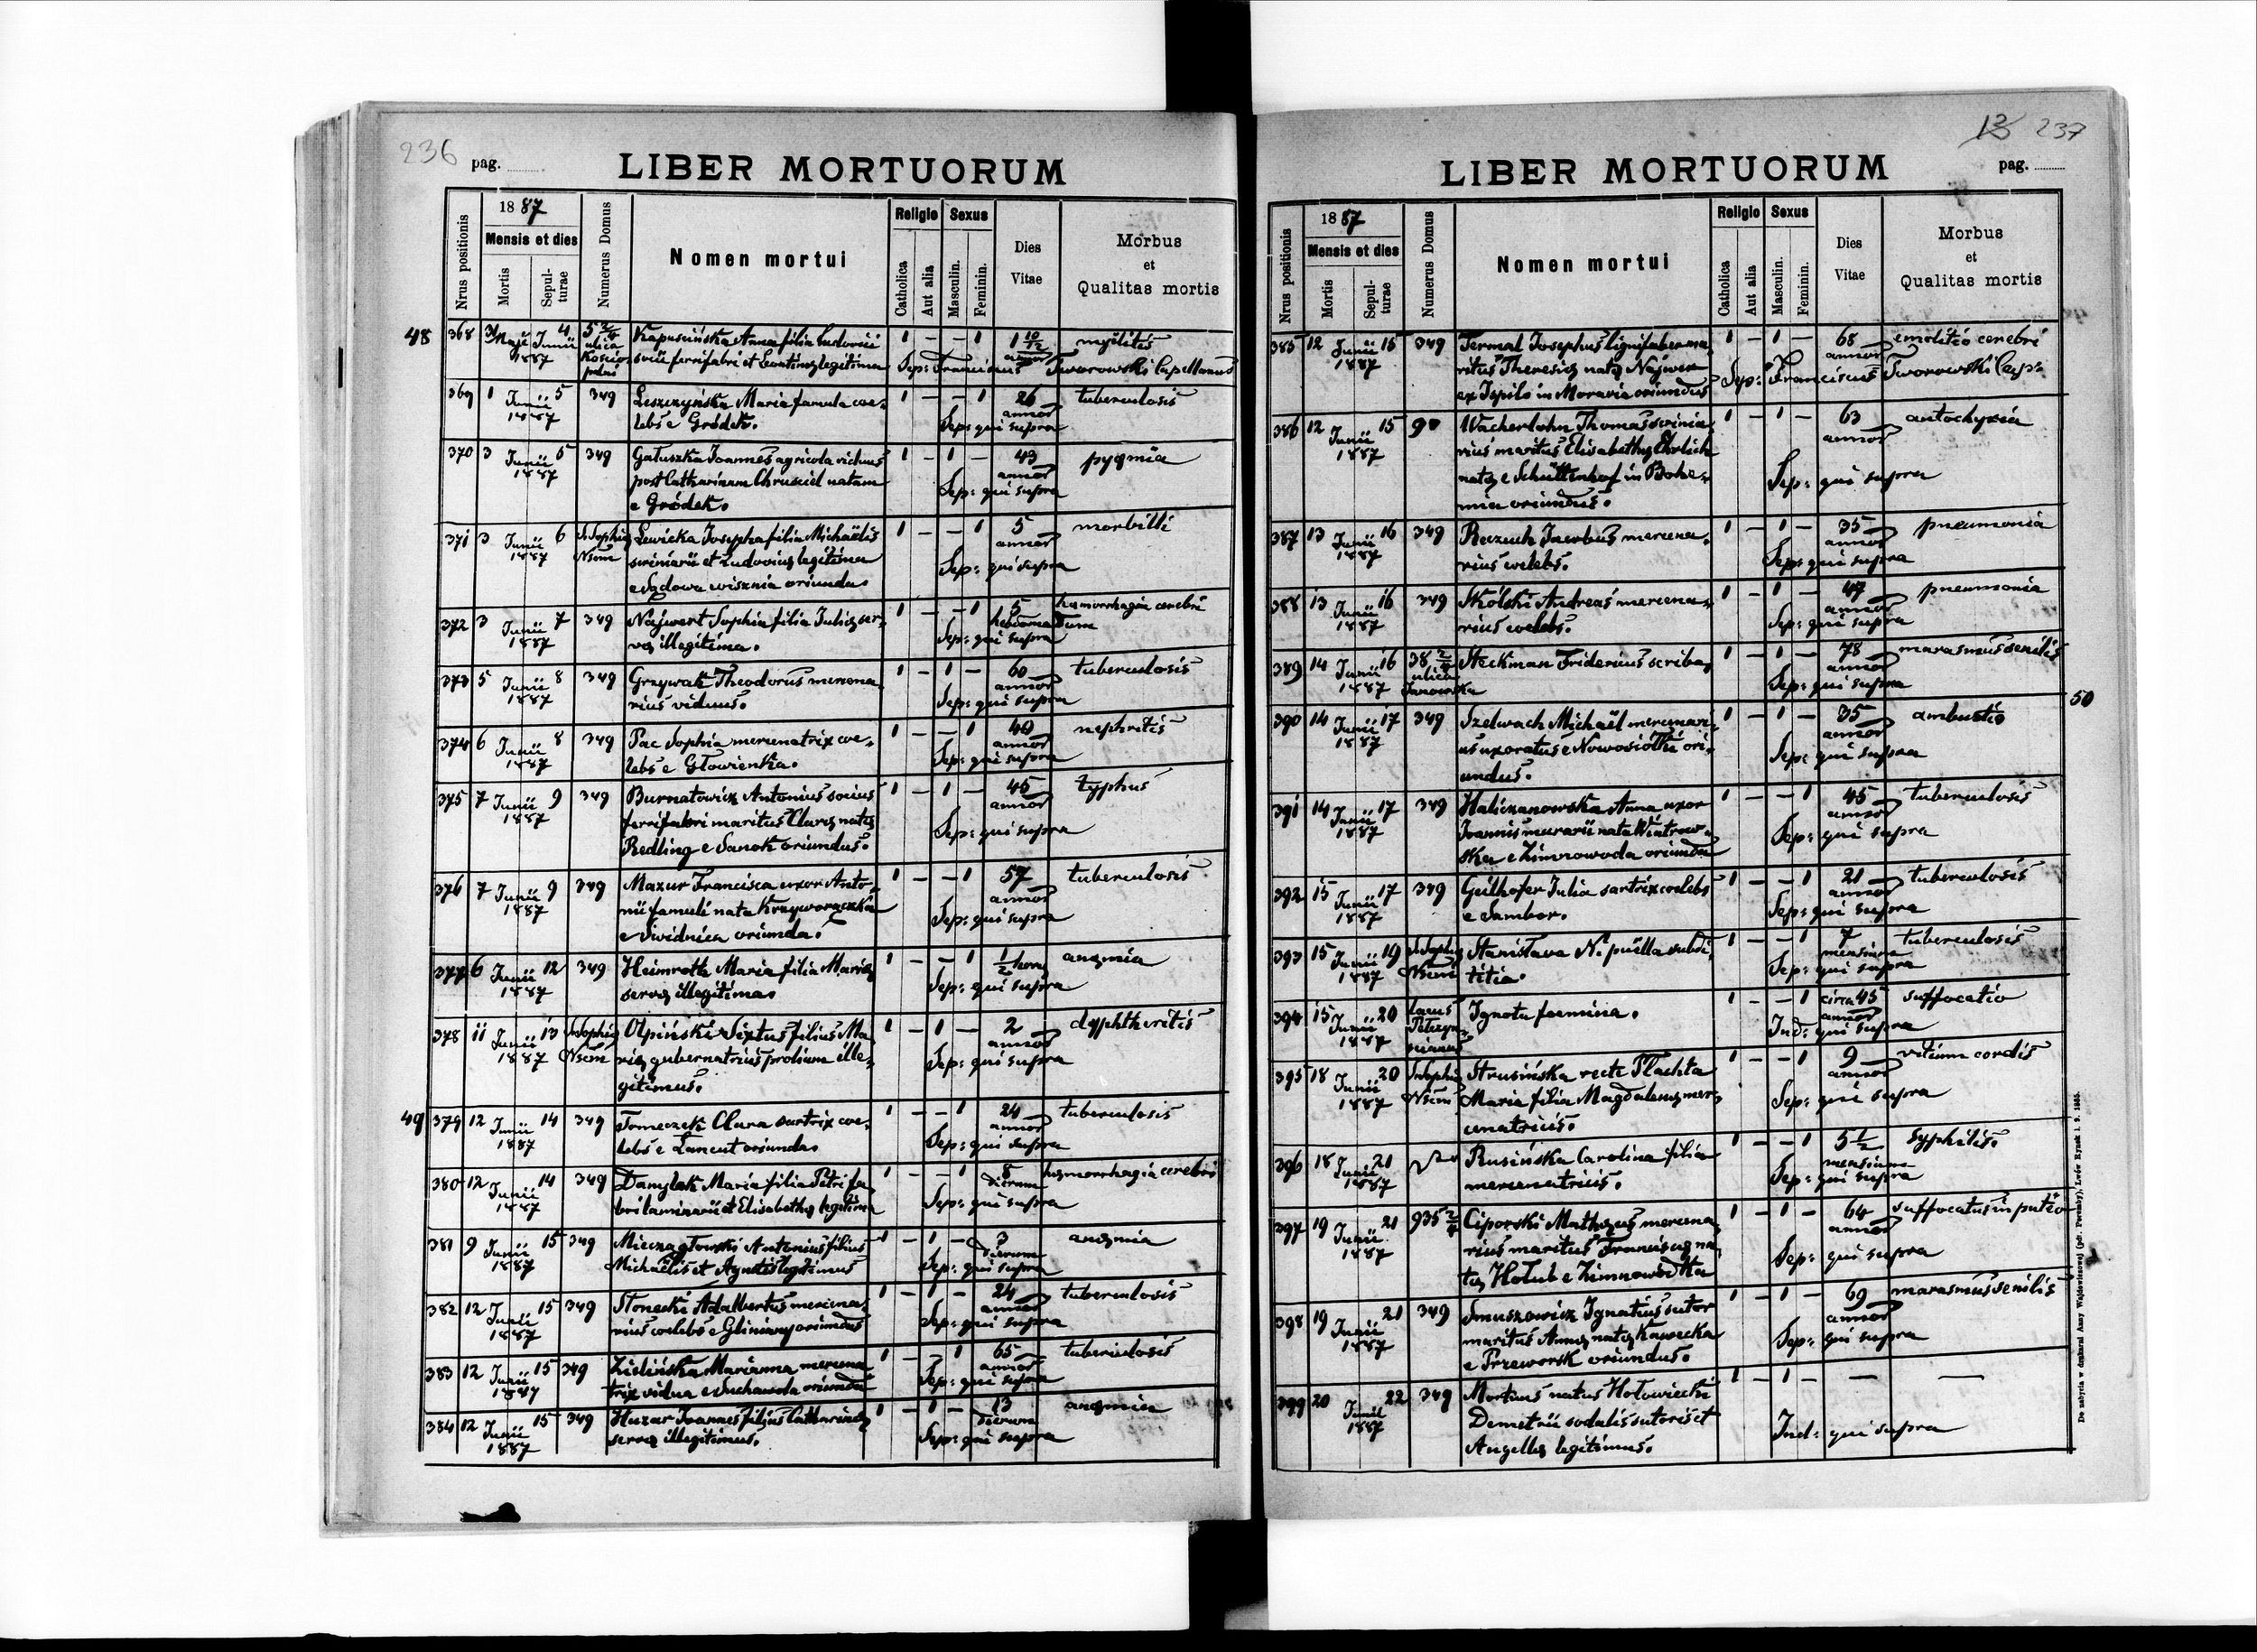 236 pag.
LIBER MORTUORUM
Nrus positionis
1887
Mensis et dies
Mortis
Sepulturae
Numerus Domus
Nomen mortui
Religio
Catholica
Aut alia
Sexus
Masculin.
Feminin.
Dies Vitae
Morbus et Qualitas mortis
48 368 31 Maji Junii 4 1887 5 2/4 ulica
Kapuścińska Anna filia Ludovici
ferrifabri et Leontinę legitima
1 — — 1 1 10/12 annor myëlitis
Sep: Franciscus Tworowski Capellanus
369 1 Junii 5 1887 349
Leszczyńska Maria famula coe-
lebs e Gródek.
1 — — 1 26 annor tuberculosis
Sep: qui supra
370 3 Junii 5 1887 349
Gałuszka Joannes agricola viduus
post Catharinam Chruściel natam
e Gródek.
1 — 1 — 43 annor pyęmia
Sep: qui supra
371 3 Junii 6 1887 S. Sophię Nsom
Lewicka Josepha filia Michaëlis
scriniarii et Ludovicę legitima
e Sądowa wisznia oriunda
1 — — 1 5 annor morbilli
Sep: qui supra
372 3 Junii 7 1887 349
Najwert Sophia filia Julię ser-
vę illegitima.
1 — — 1 5 hebdomadum hęmorrhagia cerebri
Sep: qui supra
373 5 Junii 8 1887 349
Grzywak Theodorus mercena-
rius viduus.
1 — 1 — 60 annor tuberculosis
Sep: qui supra
374 6 Junii 8 1887 349
Pac Sophia mercenatrix coe-
lebs e Głowienka.
1 — — 1 40 annor nephritis
Sep: qui supra
375 7 Junii 9 1887 349
Burnatowicz Antonius socius
ferrifabri maritus Clarę natę
Redling e Sanok oriundus.
1 — 1 — 45 annor typhus
Sep: qui supra
376 7 Junii 9 1887 349
Mazur Francisca uxor Anto-
nii famuli nata Krzyworączka
e Świdnica oriunda.
1 — — 1 57 annor tuberculosis
Sep: qui supra
377 6 Junii 12 1887 349
Heimroth Maria filia Marię
servę illegitima
1 — — 1 1/2 horę anęmia
Sep: qui supra
378 11 Junii 13 1887 S. Sophię Nsom
Olpiński Sixtus filius Ma-
rię gubernatricis prolium ille-
gitimus.
1 — 1 — 2 annor dyphtheritis
Sep: qui supra
49 379 12 Junii 14 1887 349
Tomeczek Clara sartrix coe-
lebs e Łancut oriunda
1 — — 1 24 annor tuberculosis
Sep: qui supra
380 12 Junii 14 1887 349
Danylak Maria filia Petri fa-
bri laminarii et Elisabethę legitima
1 — — 1 8 dierum hęmorrhagia cerebri
Sep: qui supra
381 9 Junii 15 1887 349
Antonius filius
Michaëlis et Agnetis legitimus
1 — 1 — 3 dierum anęmia
Sep: qui supra
382 12 Junii 15 1887 349
Słonecki Adalbertus mercena-
rius coelebs e Gliniany oriundus
1 — 1 — 24 annor tuberculosis
Sep: qui supra
383 12 Junii 15 1887 349
Zielińska Marianna mercena-
trix vidua e Suchawola oriunda
1 — — 1 65 annor tuberculosis
Sep: qui supra
384 12 Junii 15 1887 349
Huzar Joannes filius Catharinę
servę illegitimus.
1 — 1 — 13 dierum anęmia
Sep: qui supra
13 237
LIBER MORTUORUM
pag.
Nrus positionis
1887
Mensis et dies
Mortis
Sepulturae
Numerus Domus
Nomen mortui
Religio
Catholica
Aut alia
Sexus
Masculin.
Feminin.
Dies Vitae
Morbus et Qualitas mortis
385 12 Junii 15 1887 349
Termal Josephus lignifaber ma-
ritus Theresię natę Najwer
in Moravia oriundus
1 — 1 — 68 annor emolitio cerebri
Sep: Franciscus Tworowski Cap:
386 12 Junii 15 1887 90
Wacherlohn Thomas scrinia-
rius maritus Elisabethę Ehrlich
natę e Schüttenhof in Bohe-
mia oriundus.
1 — 1 — 63 annor autochyria
Sep: qui supra
387 13 Junii 16 1887 349
Raczuch Jacobus mercena-
rius coelebs.
1 — 1 — 35 annor pneumonia
Sep: qui supra
388 13 Junii 16 1887 349
Skólski Andreas mercena-
rius coelebs.
1 — 1 — 47 annor pneumonia
Sep: qui supra
389 14 Junii 16 1887 38 2/4 ulica Janowska
Steckman Fridericus scriba
1 — 1 — 78 annor marasmus senilis
Sep: qui supra
50
390 14 Junii 17 1887 349
Szelwach Michaël mercenari-
us uxoratus e Nowosiółki ori-
undus.
1 — 1 — 35 annor ambustio
Sep: qui supra
391 14 Junii 17 1887 349
Haliczanowska Anna uxor
Joannis murarii nata Wiatrow-
ska e Zimnowoda oriunda
1 — — 1 45 annor tuberculosis
Sep: qui supra
392 15 Junii 17 1887 349
Geilhofer Julia sartrix coelebs
e Sambor.
1 — — 1 21 annor tuberculosis
Sep: qui supra
393 15 Junii 19 1887 S. Sophię Nsom
Stanislava N. puella subdi-
titia.
1 — — 1 7 mensium tuberculosis
Sep: qui supra
394 15 Junii 20 1887 lacus
Ignota foemina.
1 — — 1 circa 45 annor suffocatio
Ind: qui supra
395 18 Junii 20 1887 S. Sophię Nsom
Strusińska recte Płachta
Maria filia Magdalenę mer-
cenatricis.
1 — — 1 9 annor vitium cordis
Sep: qui supra
396 18 Junii 21 1887
Rusińska Carolina filia
mercenatricis.
1 — — 1 5 1/2 mensium syphilis.
Sep: qui supra
397 19 Junii 21 1887 935 2/4
Ciporski Mathęus mercena-
rius maritus Franciscę na-
tę Hołub e Zimnowódka
1 — 1 — 64 annor suffocatus in puteo
Sep: qui supra
398 19 Junii 21 1887 349
Smuszowicz Ignatius sutor
maritus Annę natę Kawecka
e Przeworsk oriundus.
1 — 1 — 69 annor marasmus senilis
Sep: qui supra
399 20 Junii 22 1887 349
Mortuus natus Hołowiecki
Demetrii sodalis sutoris et
Angellę legitimus.
1 — 1 — — —
Ind: qui supra